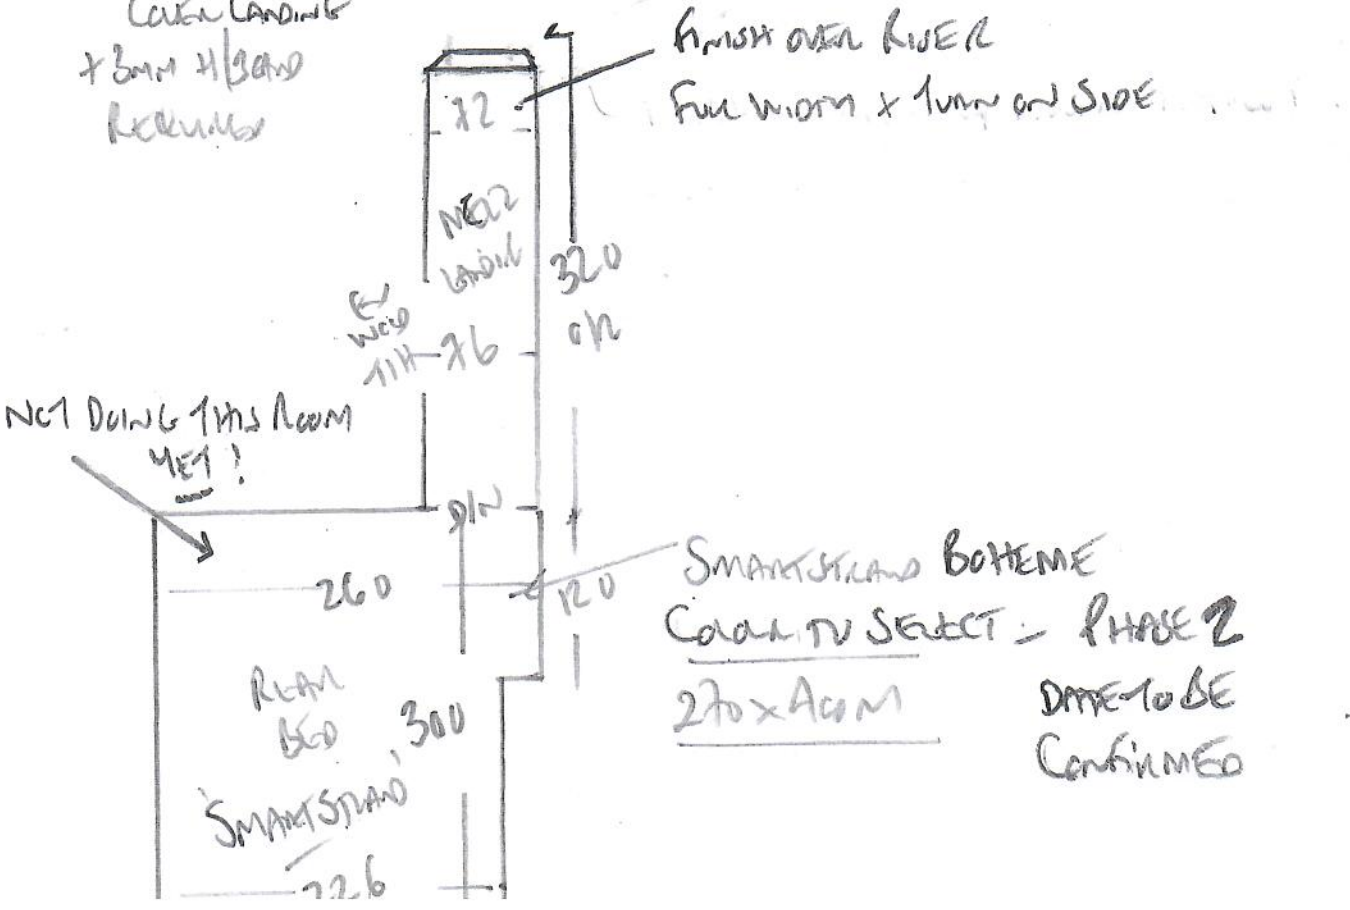 COVER LANDING
+ 3mm H/BOARD
REQUIRED
FINISH OVER RISER
FULL WIDTH & TURN ON SIDE
72
MEZZ
LANDING
320
O/R
EX
WOOD
76
NOT DOING THIS ROOM
YET!
D/N
260
120
SMARTSTRAND BOHEME
COLOUR TO SELECT - PHASE 2
270 x 400M
DATE TO BE
CONFIRMED
REAR
BED
300
'SMARTSTRAND'
226